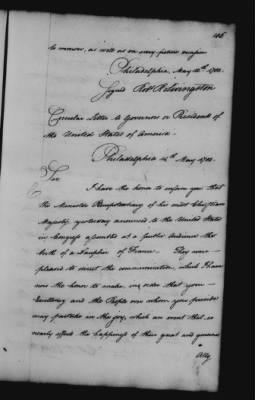 106
to morrow, as well as on every future occasion
Philadelphia, May 12th 1782.
Signed Robt R Livingston
Circular Letter to Governors or Presidents of
the United States of America.
Philadelphia 14th May 1782.
Sir
I have the honor to inform you that
the Minister Plenipotentiary of his most Christian
Majesty, yesterday announced to the United States
in Congress assembled at a public Audience the
birth of a Dauphin of France. They were
pleased to direct the communication, which I have
now the honor to make, in order that your
Excellency and the People over whom you preside
may partake in the joy, which an event that so
nearly affects the happiness of their great and generous
Ally